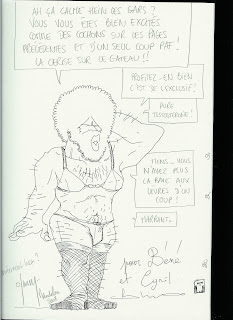 AH ÇA CALME HEIN LES GARS ?
VOUS VOUS ÊTES BIEN EXCITÉS
COMME DES COCHONS SUR LES PAGES
PRÉCÉDENTES ET D'UN SEUL COUP PAF !
LA CERISE SUR LE GATEAU !!
PROFITEZ-EN BIEN
C'EST DE L'EXCLUSIF !
PURE
TESTOSTÉRONE !
TIENS... VOUS
N'AVEZ PLUS
LA BAVE AUX
LÈVRES D'UN
COUP !
MARRANT...
pour Béné
et Cyril